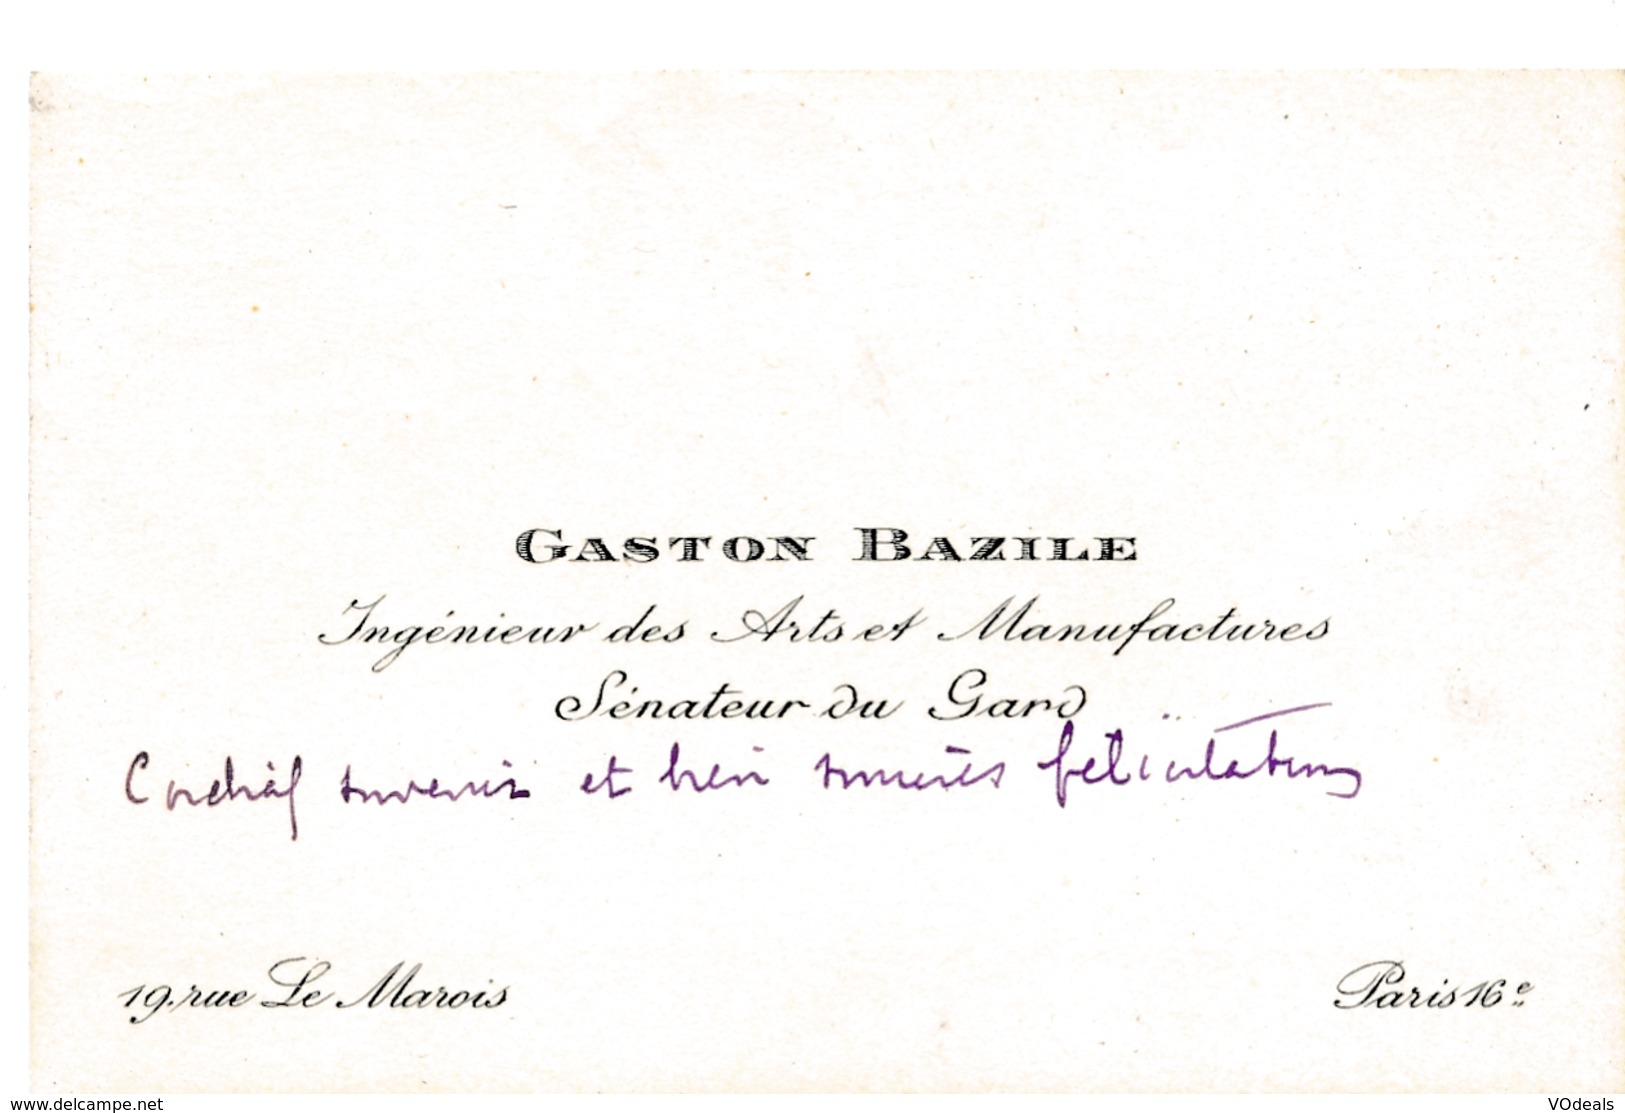 GASTON BAZILE
Ingénieur des Arts et Manufactures
Sénateur du Gard
Cordial souvenir et bien sincères félicitations
19, rue Le Marois
Paris 16e
www.delcampe.net
VOdeals